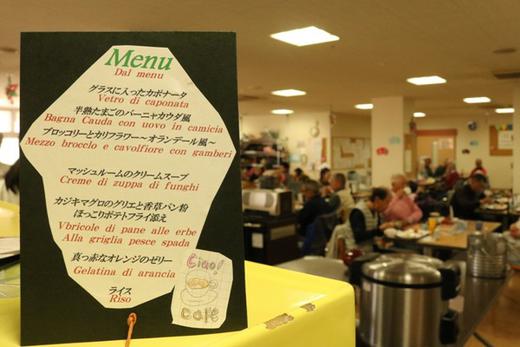 Menu
Dal menu
グラスに入ったカポナータ
Vetro di caponata
半熟たまごのバーニャカウダ風
Bagna Cauda con uovo in camicia
ブロッコリーとカリフラワー～オランデール風～
Mezzo broccio e cavolfiore con gamberi
マッシュルームのクリームスープ
Creme di zuppa di funghi
カジキマグロのグリエと香草パン粉
ほっこりポテトフライ添え
Vbricole di pane alle erbe
Alla griglia pesce spada
真っ赤なオレンジのゼリー
Gelatina di arancia
ライス
Riso
Ciao!
Café